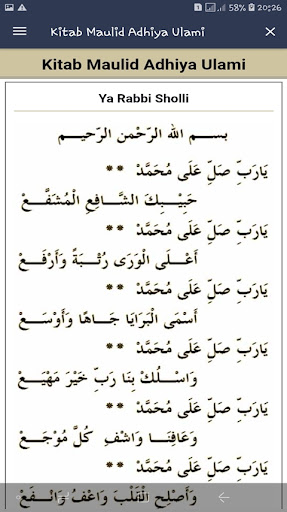 58% 20:26
Kitab Maulid Adhiya Ulami
Kitab Maulid Adhiya Ulami
Ya Rabbi Sholli
بســـم الله الرَّحْمنِ الرَّحيـــم
يَارَبِّ صَلِّ عَلَى مُحَمَّدْ **
حَبِيْبِكَ الشَّـافِعِ الْمُشَفَّـعْ
يَارَبِّ صَلِّ عَلَى مُحَمَّدْ **
أَعْـلَى الْوَرَى رُتْـبَةً وَأَرْفَـعْ
يَارَبِّ صَلِّ عَلَى مُحَمَّدْ **
أَسْمَى الْبَرَايَا جَـاهًا وَأَوْسَـعْ
يَارَبِّ صَلِّ عَلَى مُحَمَّدْ **
وَاسْـلُكْ بِنَا رَبِّ خَيْرَ مَهْيَـعْ
يَارَبِّ صَلِّ عَلَى مُحَمَّدْ **
وَعَافِنَـا وَاشْفِ كُلَّ مُوْجَـعْ
يَارَبِّ صَلِّ عَلَى مُحَمَّدْ **
وَأَصْلِحِ الْقَلْبَ وَاعْفُ وَانْـفَعْ